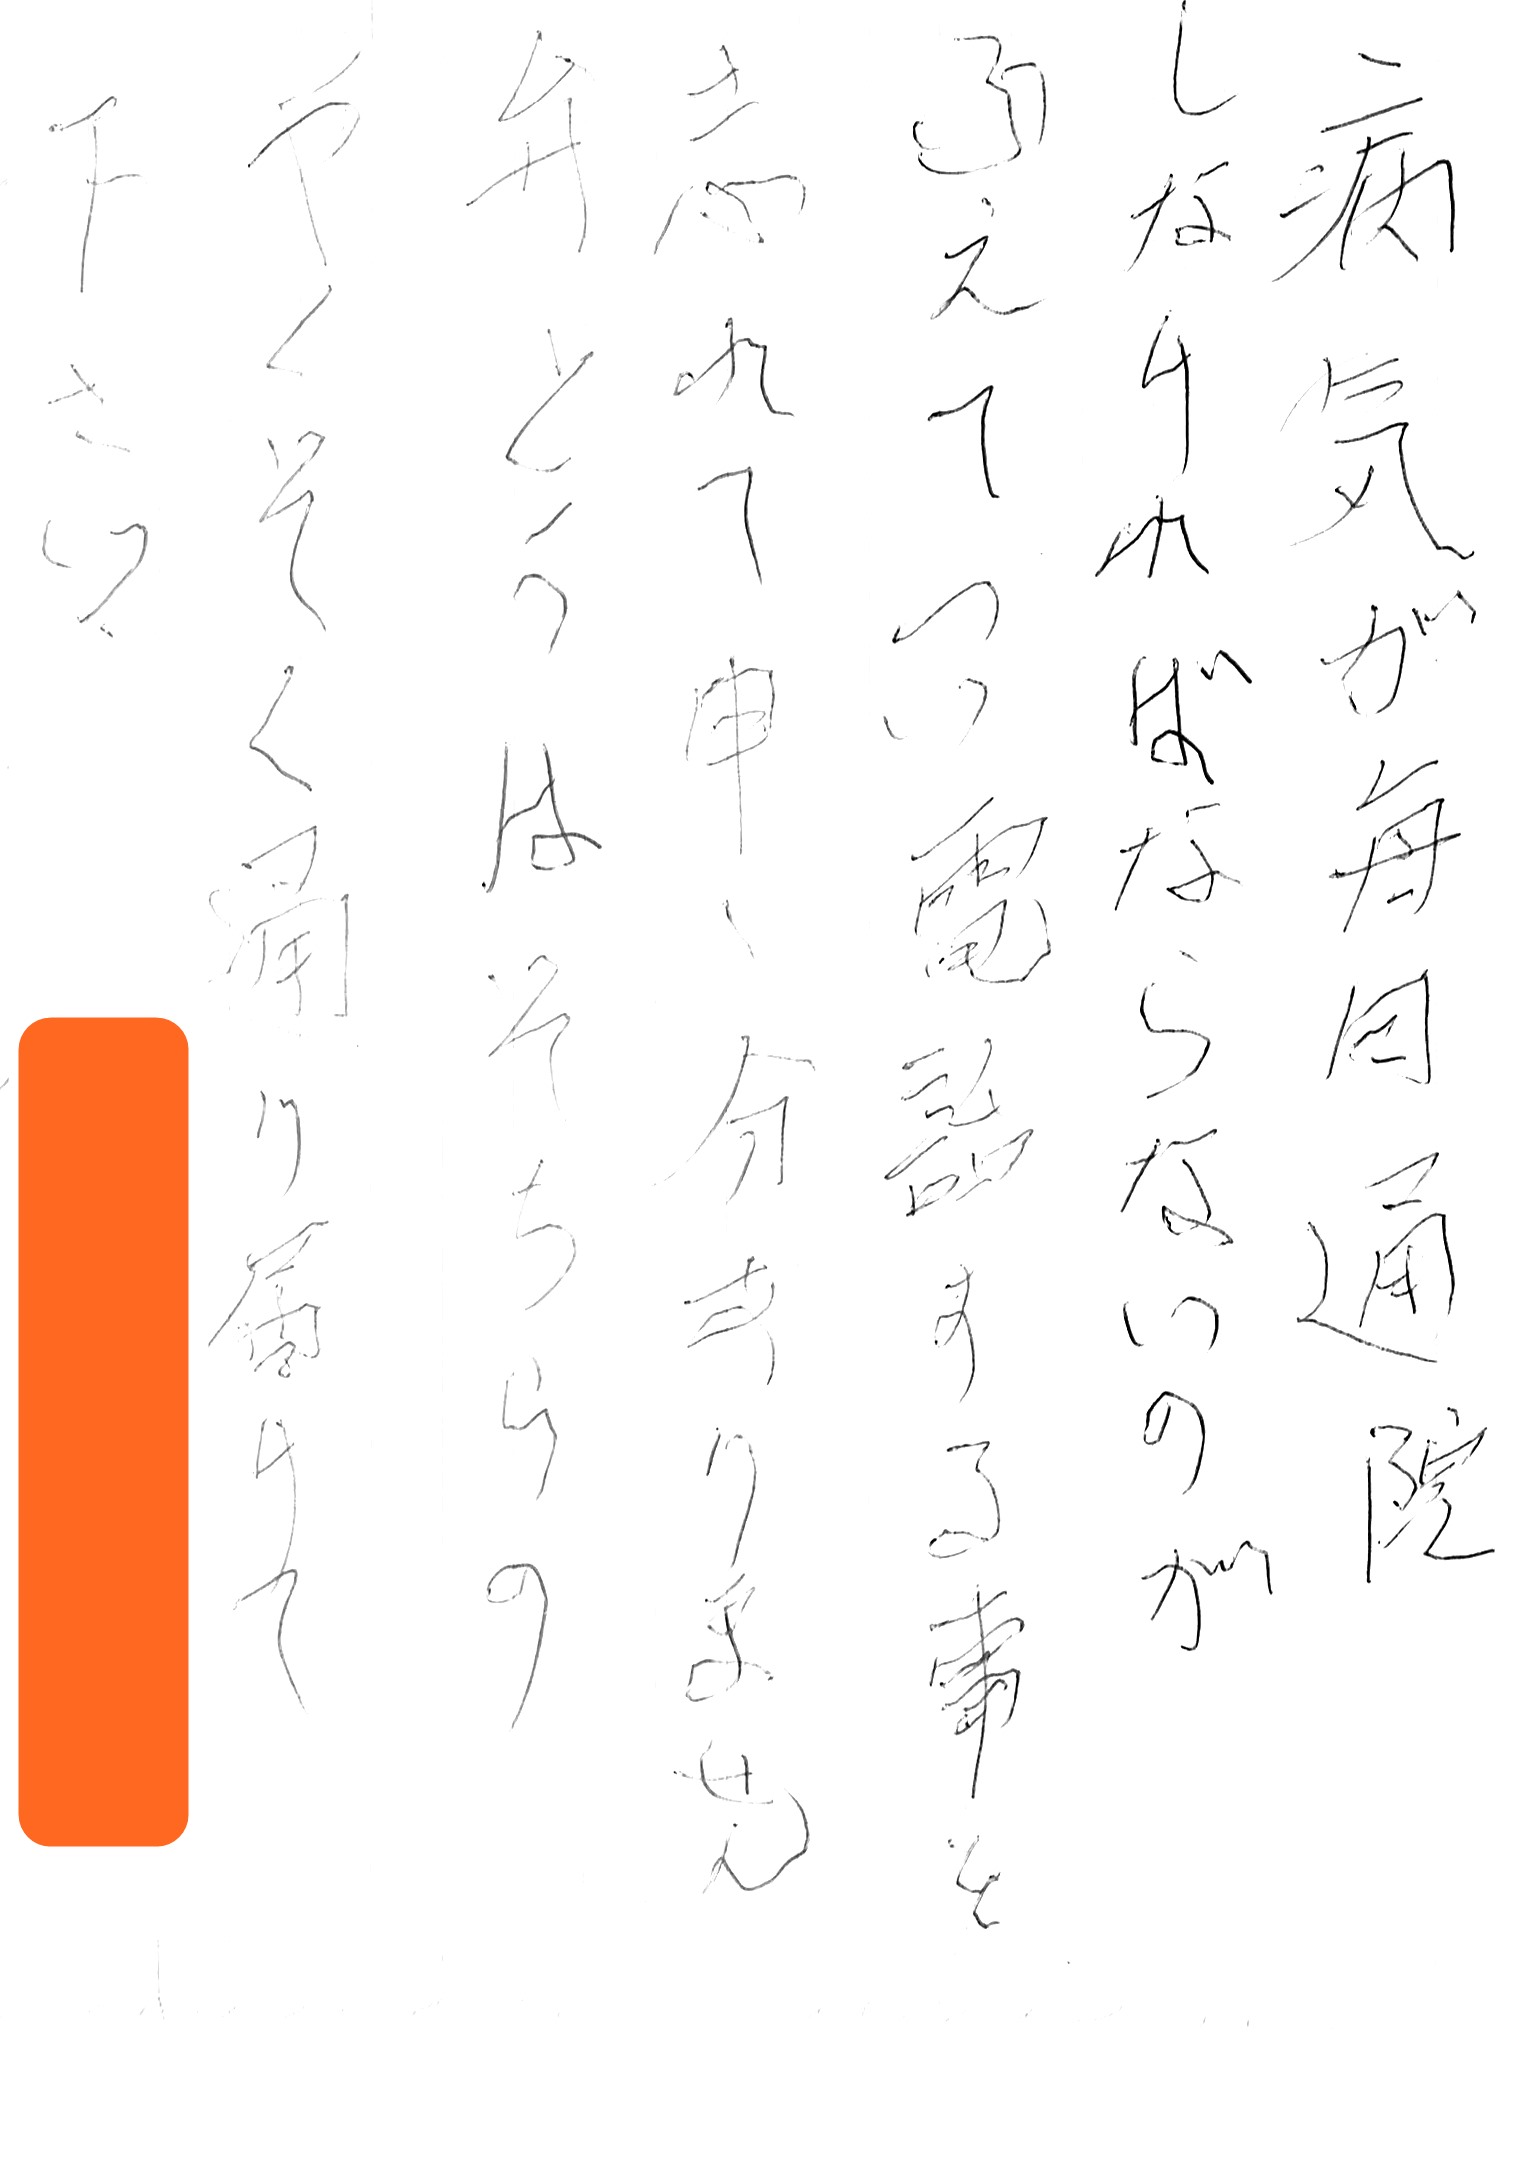 病気が毎回通院
しなければならないのが
ふえてつい電話する事を
忘れて申し分ありません
弁とうはそちらの
やくそく通り届けて
下さい。